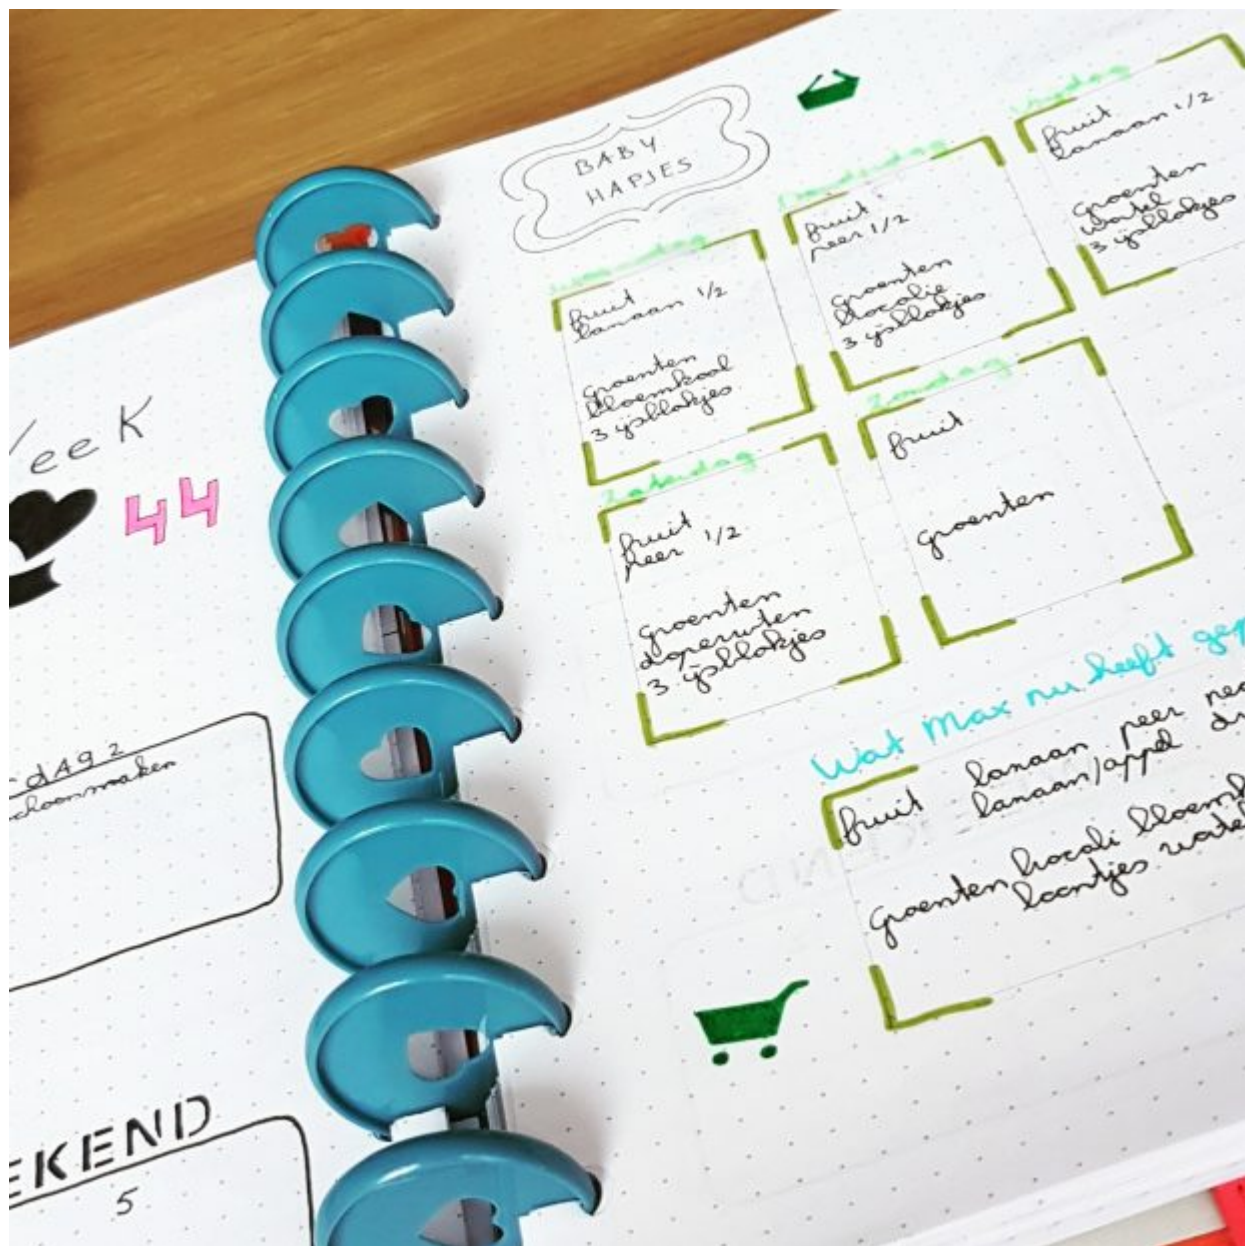 Week
44
dAg 2
schoonmaken
EKEND
5
BABY
HAPJES
woensdag
fruit
banaan 1/2
groenten
bloemkool
3 ijsblokjes
donderdag
fruit
peer 1/2
groenten
brocolie
3 ijsblokjes
vrijdag
fruit
banaan 1/2
groenten
wortel
3 ijsblokjes
Zaterdag
fruit
peer 1/2
groenten
doperwten
3 ijsblokjes
Zondag
fruit
groenten
Wat Max nu heeft gep
fruit banaan peer
banaan/appel
Groenten brocoli bloemk
boontjes